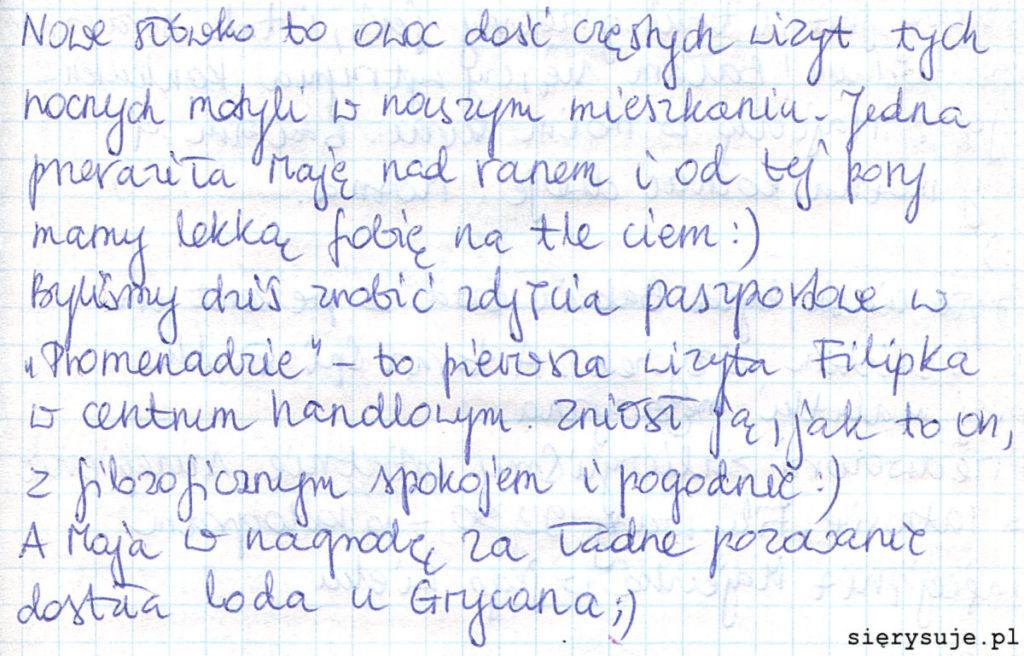 Nowe słówko to owoc dość częstych wizyt tych
nocnych motyli w naszym mieszkaniu. Jedna
przeraziła Maję nad ranem i od tej pory
mamy lekką fobię na tle ciem :)
Byliśmy dziś zrobić zdjęcia paszportowe w
„Promenadzie" – to pierwsza wizyta Filipka
w centrum handlowym. Zniósł ją, jak to on,
z filozoficznym spokojem i pogodnie :)
A Maja w nagrodę za ładne pozowanie
dostała loda u Grycana ;)
sierysuje.pl